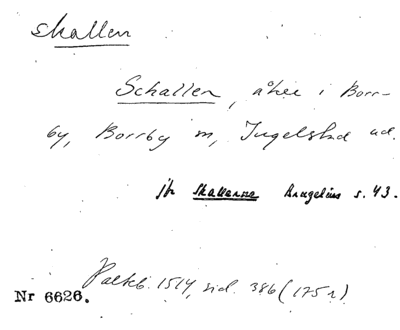 skallen
Schallen, åker i Borr-
by, Borrby sn, Ingelstad hd.
jfr Skallarna Areskog s. 43.
Palteb. 1514, sid. 386 (175 r)
Nr 6626.